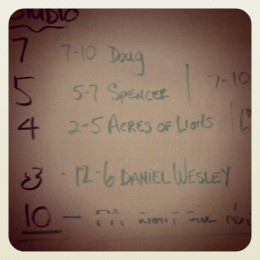 STUDIO
7 7-10 Doug
5 5-7 SPENCER 7-10
4 2-5 ACRES OF LIONS
8 - 12-6 DANIEL WESLEY
10 -